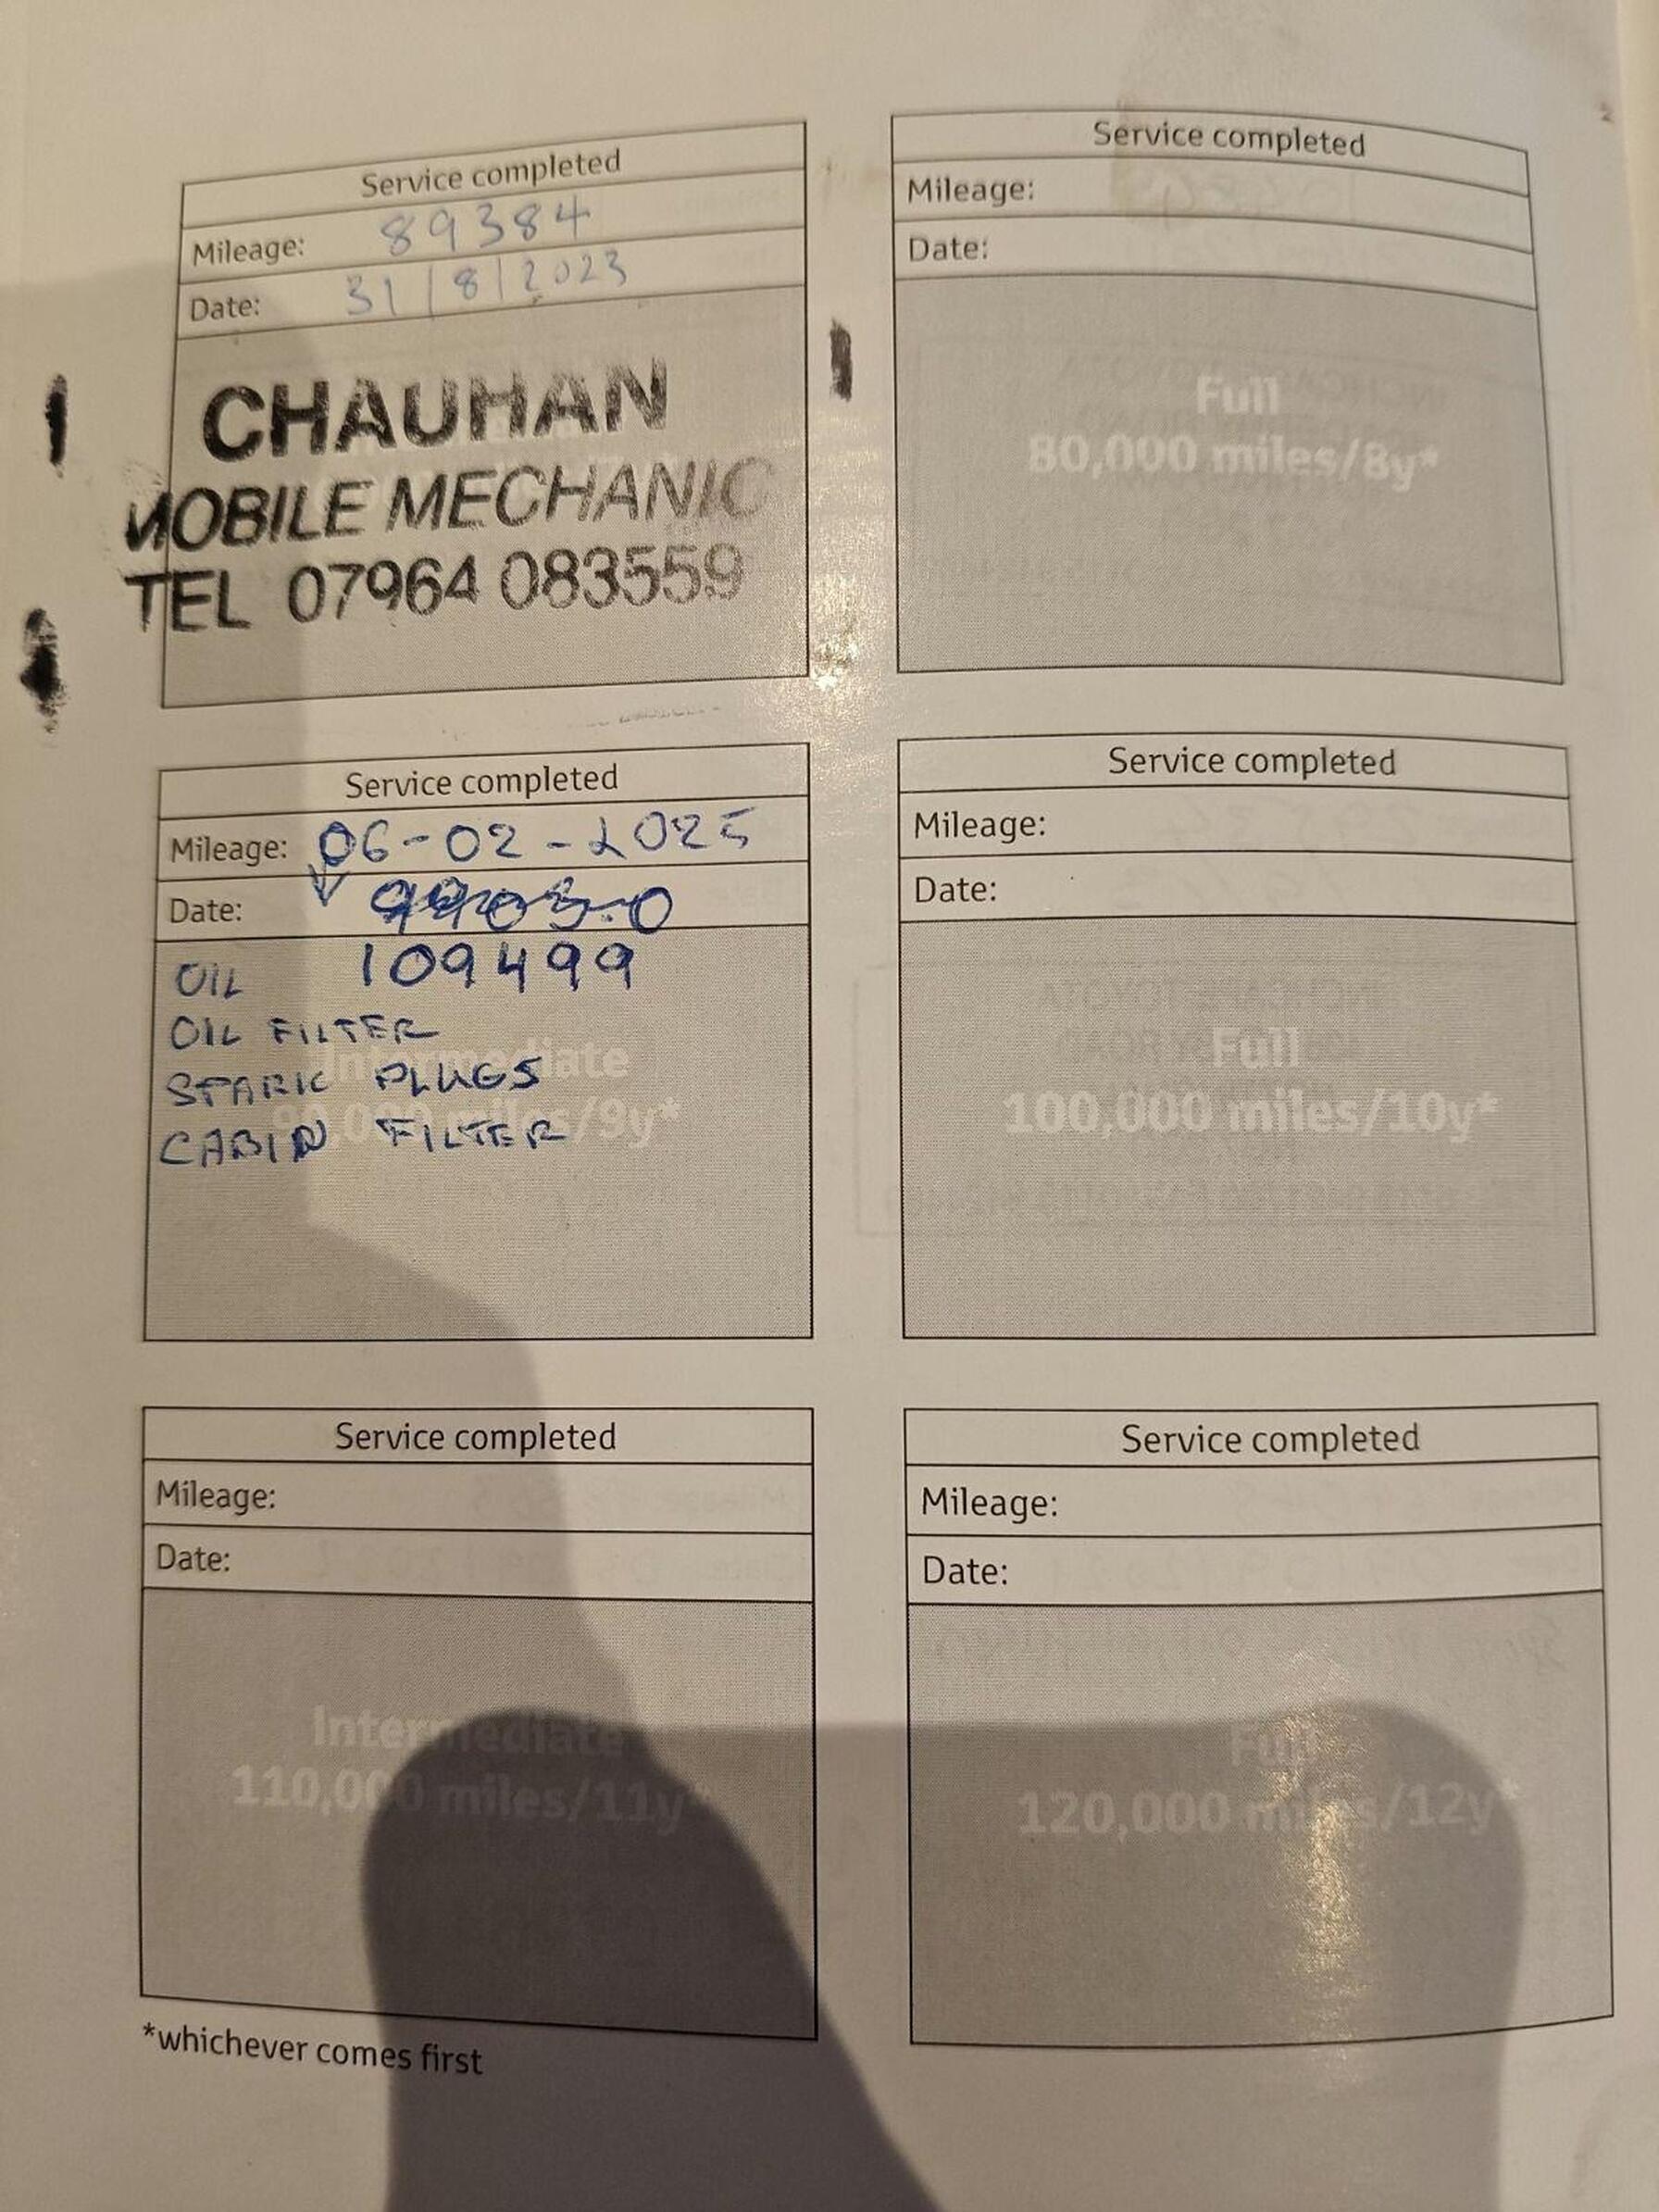 Service completed
Mileage: 89384
Date: 31/8/2023
CHAUHAN
MOBILE MECHANIC
TEL 07964 083559
Service completed
Mileage:
Date:
Full
80,000 miles/8y*
Service completed
Mileage: 06-02-2025
Date:
109499
OIL
OIL FILTER
SPARK PLUGS
CABIN FILTER
Intermediate
90,000 miles/9y*
Service completed
Mileage:
Date:
Full
100,000 miles/10y*
Service completed
Mileage:
Date:
Intermediate
110,000 miles/11y*
Service completed
Mileage:
Date:
Full
120,000 miles/12y*
*whichever comes first